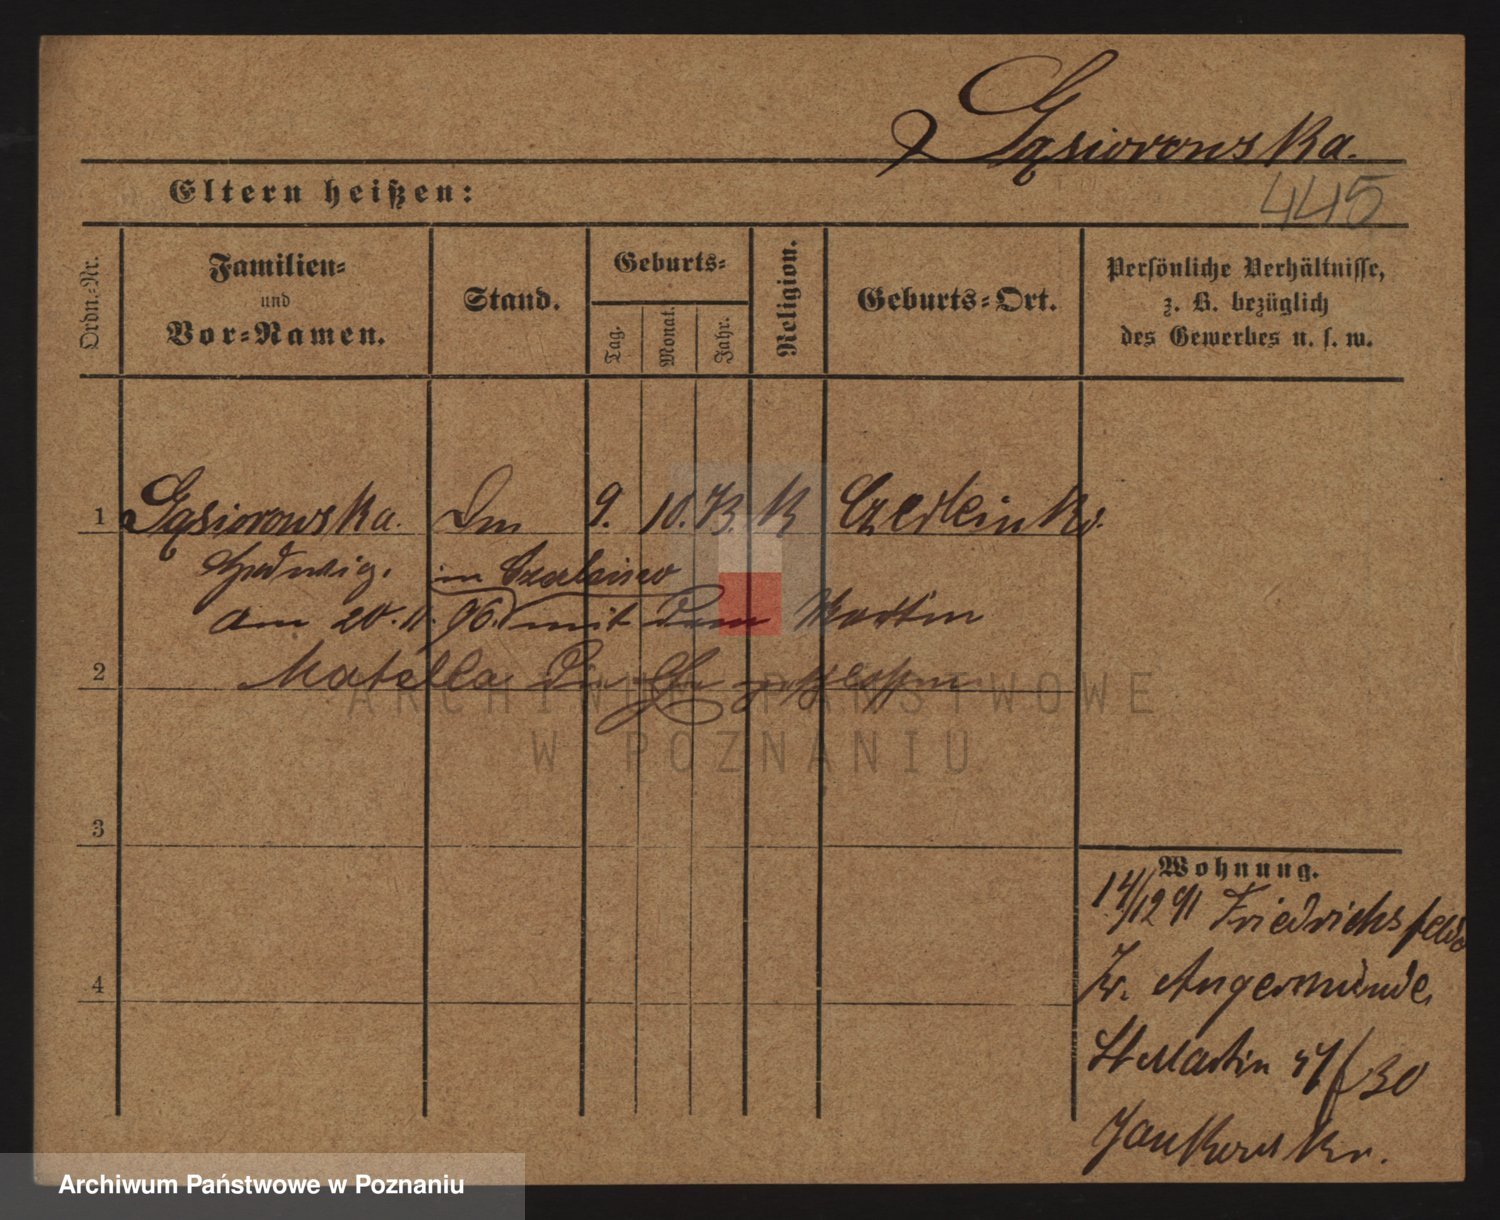 Gąsiorowska.
Eltern heißen:
445
Ordn.-Nr.
Familien-
und
Vor-Namen.
Stand.
Geburts-
Tag.
Monat.
Jahr.
Religion.
Geburts-Ort.
Persönliche Verhältnisse,
z. B. bezüglich
des Gewerbes u. s. w.
1 Gąsiorowska. 9. 10. 73. K
Hedwig. in
am 20. 11. 96. mit dem Martin
2 Matella die Ehe geschlossen
ARCHIWUM PAŃSTWOWE
W POZNANIU
3
Wohnung.
14/12 91 Friedrichsfelde
4
Kr. Angermünde
St Martin 30